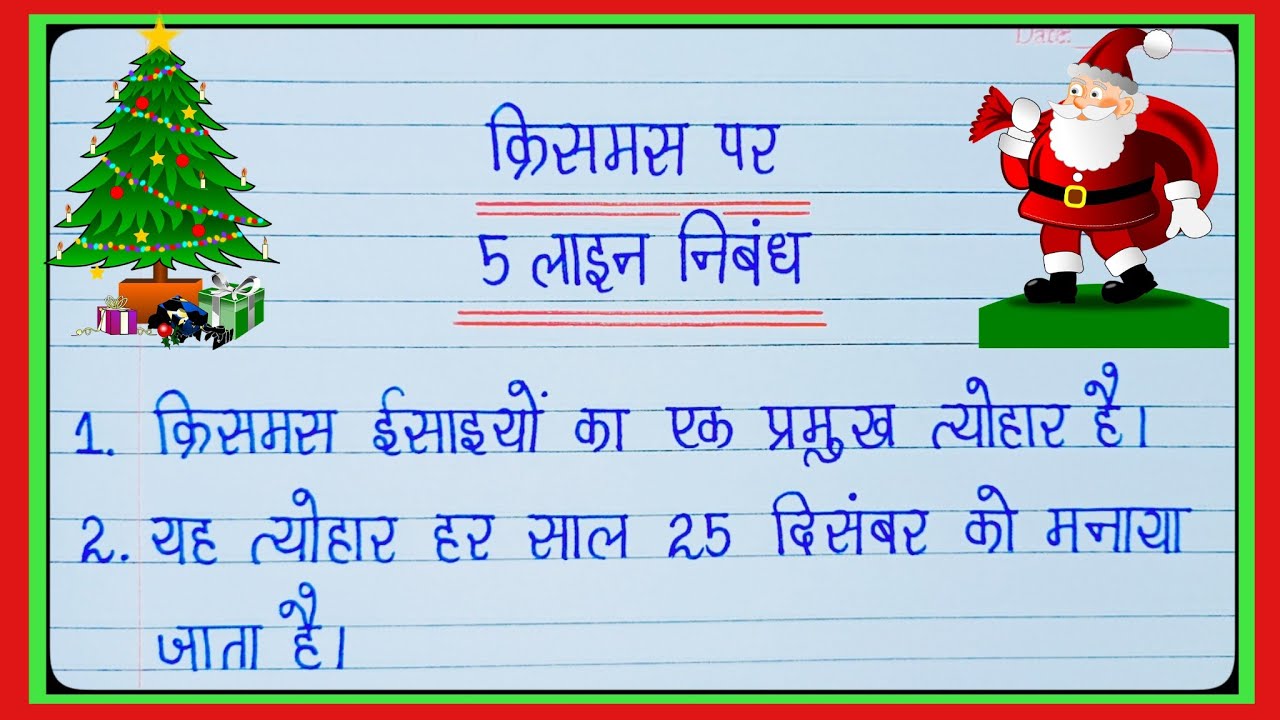 Date:
क्रिसमस पर
5 लाइन निबंध
1. क्रिसमस ईसाइयों का एक प्रमुख त्योहार है।
2. यह त्योहार हर साल 25 दिसंबर को मनाया
जाता है।